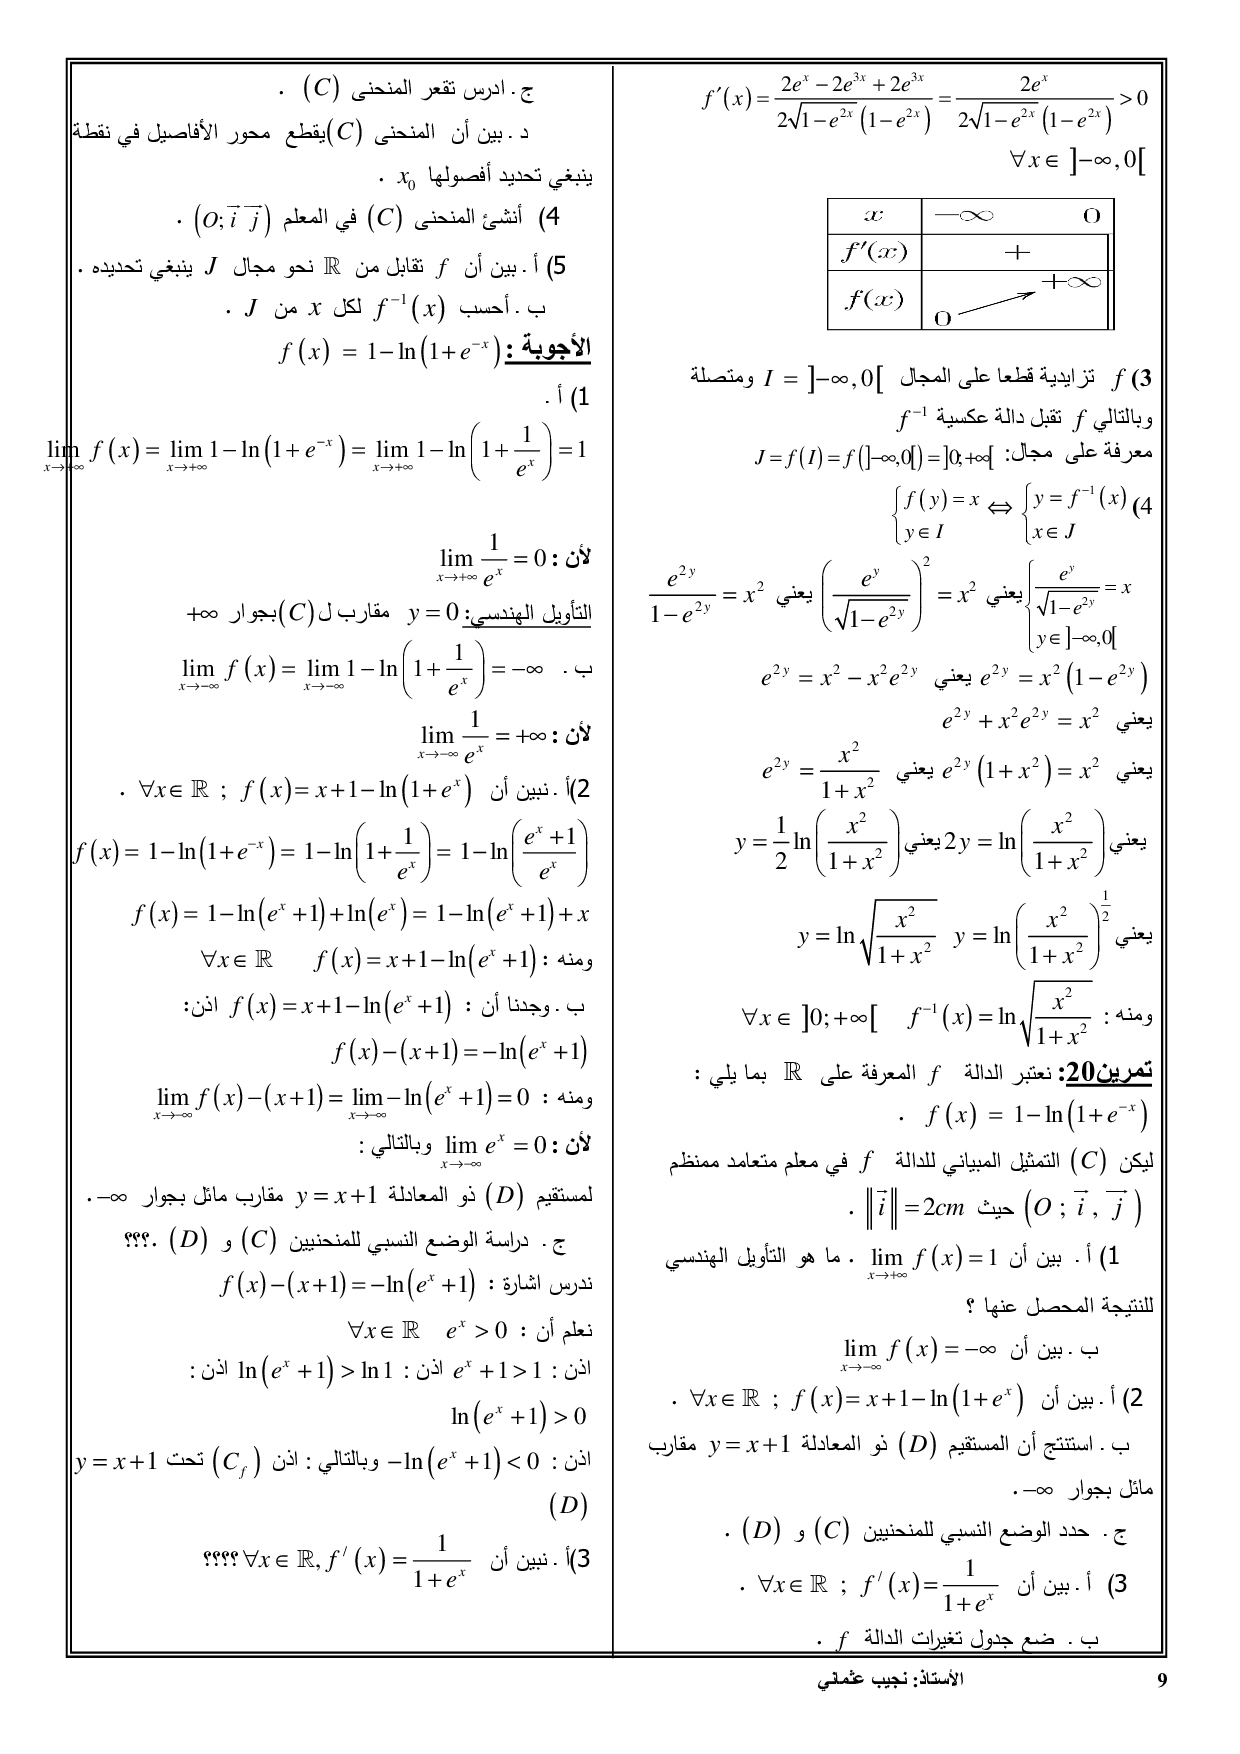 f′(x) = (2e^x − 2e^{3x} + 2e^{3x}) / (2√(1−e^{2x}) (1−e^{2x})) = 2e^x / (2√(1−e^{2x}) (1−e^{2x})) > 0
∀x ∈ ]−∞,0[
x −∞ 0
f′(x) +
f(x) 0 +∞
3) f تزايدية قطعا على المجال I = ]−∞,0[ ومتصلة
وبالتالي f تقبل دالة عكسية f^{−1}
معرفة على مجال: J = f(I) = f(]−∞,0[) = ]0;+∞[
4) {y = f^{−1}(x) , x ∈ J ⇔ {f(y) = x , y ∈ I
{e^y/√(1−e^{2y}) = x , y ∈ ]−∞,0[ يعني (e^y/√(1−e^{2y}))^2 = x^2 يعني e^{2y}/(1−e^{2y}) = x^2
e^{2y} = x^2(1−e^{2y}) يعني e^{2y} = x^2 − x^2e^{2y}
يعني e^{2y} + x^2e^{2y} = x^2
يعني e^{2y}(1+x^2) = x^2 يعني e^{2y} = x^2/(1+x^2)
يعني 2y = ln(x^2/(1+x^2)) يعني y = 1/2 ln(x^2/(1+x^2))
يعني y = ln(x^2/(1+x^2))^{1/2} y = ln√(x^2/(1+x^2))
ومنه : f^{−1}(x) = ln√(x^2/(1+x^2)) ∀x ∈ ]0;+∞[
تمرين20: نعتبر الدالة f المعرفة على ℝ بما يلي :
f(x) = 1−ln(1+e^{−x}) .
ليكن (C) التمثيل المبياني للدالة f في معلم متعامد ممنظم
(O ; i→ , j→) حيث ‖i→‖ = 2cm .
1) أ . بين أن lim_{x→+∞} f(x) = 1 . ما هو التأويل الهندسي
للنتيجة المحصل عنها ؟
ب . بين أن lim_{x→−∞} f(x) = −∞
2) أ . بين أن ∀x ∈ ℝ ; f(x) = x+1−ln(1+e^x) .
ب . استنتج أن المستقيم (D) ذو المعادلة y = x+1 مقارب
مائل بجوار −∞ .
ج . حدد الوضع النسبي للمنحنيين (C) و (D) .
3) أ . بين أن ∀x ∈ ℝ ; f^/(x) = 1/(1+e^x) .
ب . ضع جدول تغيرات الدالة f .
ج . ادرس تقعر المنحنى (C) .
د . بين أن المنحنى (C) يقطع محور الأفاصيل في نقطة
ينبغي تحديد أفصولها x_0 .
4) أنشئ المنحنى (C) في المعلم (O; i→ j→) .
5) أ . بين أن f تقابل من ℝ نحو مجال J ينبغي تحديده .
ب . أحسب f^{−1}(x) لكل x من J .
الأجوبة : f(x) = 1−ln(1+e^{−x})
1) أ .
lim_{x→+∞} f(x) = lim_{x→+∞} 1−ln(1+e^{−x}) = lim_{x→+∞} 1−ln(1+1/e^x) = 1
لأن : lim_{x→+∞} 1/e^x = 0
التأويل الهندسي: y = 0 مقارب ل (C) بجوار +∞
ب . lim_{x→−∞} f(x) = lim_{x→−∞} 1−ln(1+1/e^x) = −∞
لأن : lim_{x→−∞} 1/e^x = +∞
2)أ . نبين أن ∀x ∈ ℝ ; f(x) = x+1−ln(1+e^x) .
f(x) = 1−ln(1+e^{−x}) = 1−ln(1+1/e^x) = 1−ln((e^x+1)/e^x)
f(x) = 1−ln(e^x+1)+ln(e^x) = 1−ln(e^x+1)+x
ومنه : f(x) = x+1−ln(e^x+1) ∀x ∈ ℝ
ب . وجدنا أن : f(x) = x+1−ln(e^x+1) اذن:
f(x)−(x+1) = −ln(e^x+1)
ومنه : lim_{x→−∞} f(x)−(x+1) = lim_{x→−∞} −ln(e^x+1) = 0
لأن : lim_{x→−∞} e^x = 0 وبالتالي :
لمستقيم (D) ذو المعادلة y = x+1 مقارب مائل بجوار −∞ .
ج . دراسة الوضع النسبي للمنحنيين (C) و (D) .؟؟؟
ندرس اشارة : f(x)−(x+1) = −ln(e^x+1)
نعلم أن : e^x > 0 ∀x ∈ ℝ
اذن : e^x+1 > 1 اذن : ln(e^x+1) > ln1 اذن :
ln(e^x+1) > 0
اذن : −ln(e^x+1) < 0 وبالتالي : اذن (C_f) تحت y = x+1
(D)
3)أ . نبين أن ∀x ∈ ℝ, f^/(x) = 1/(1+e^x) ؟؟؟؟
9 الأستاذ: نجيب عثماني